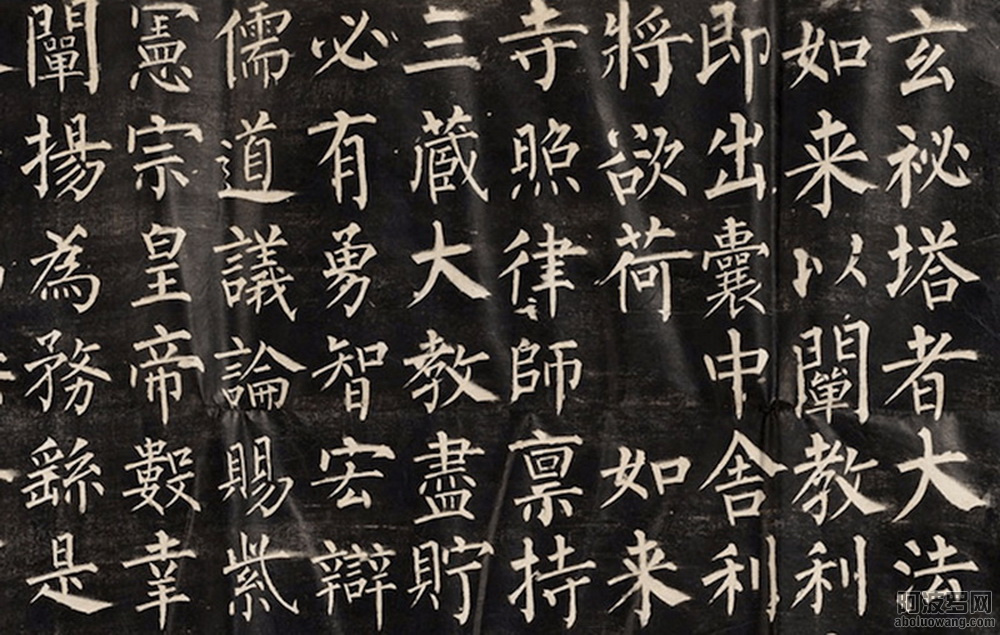 玄祕塔者大法
如来以闡教利
即出囊中舍利
將欲荷 如来
寺照律師禀持
三藏大教盡貯
必有勇智宏辯
儒道議論賜紫
憲宗皇帝數幸
闡揚為務繇是
阿波罗网
aboluowang.com